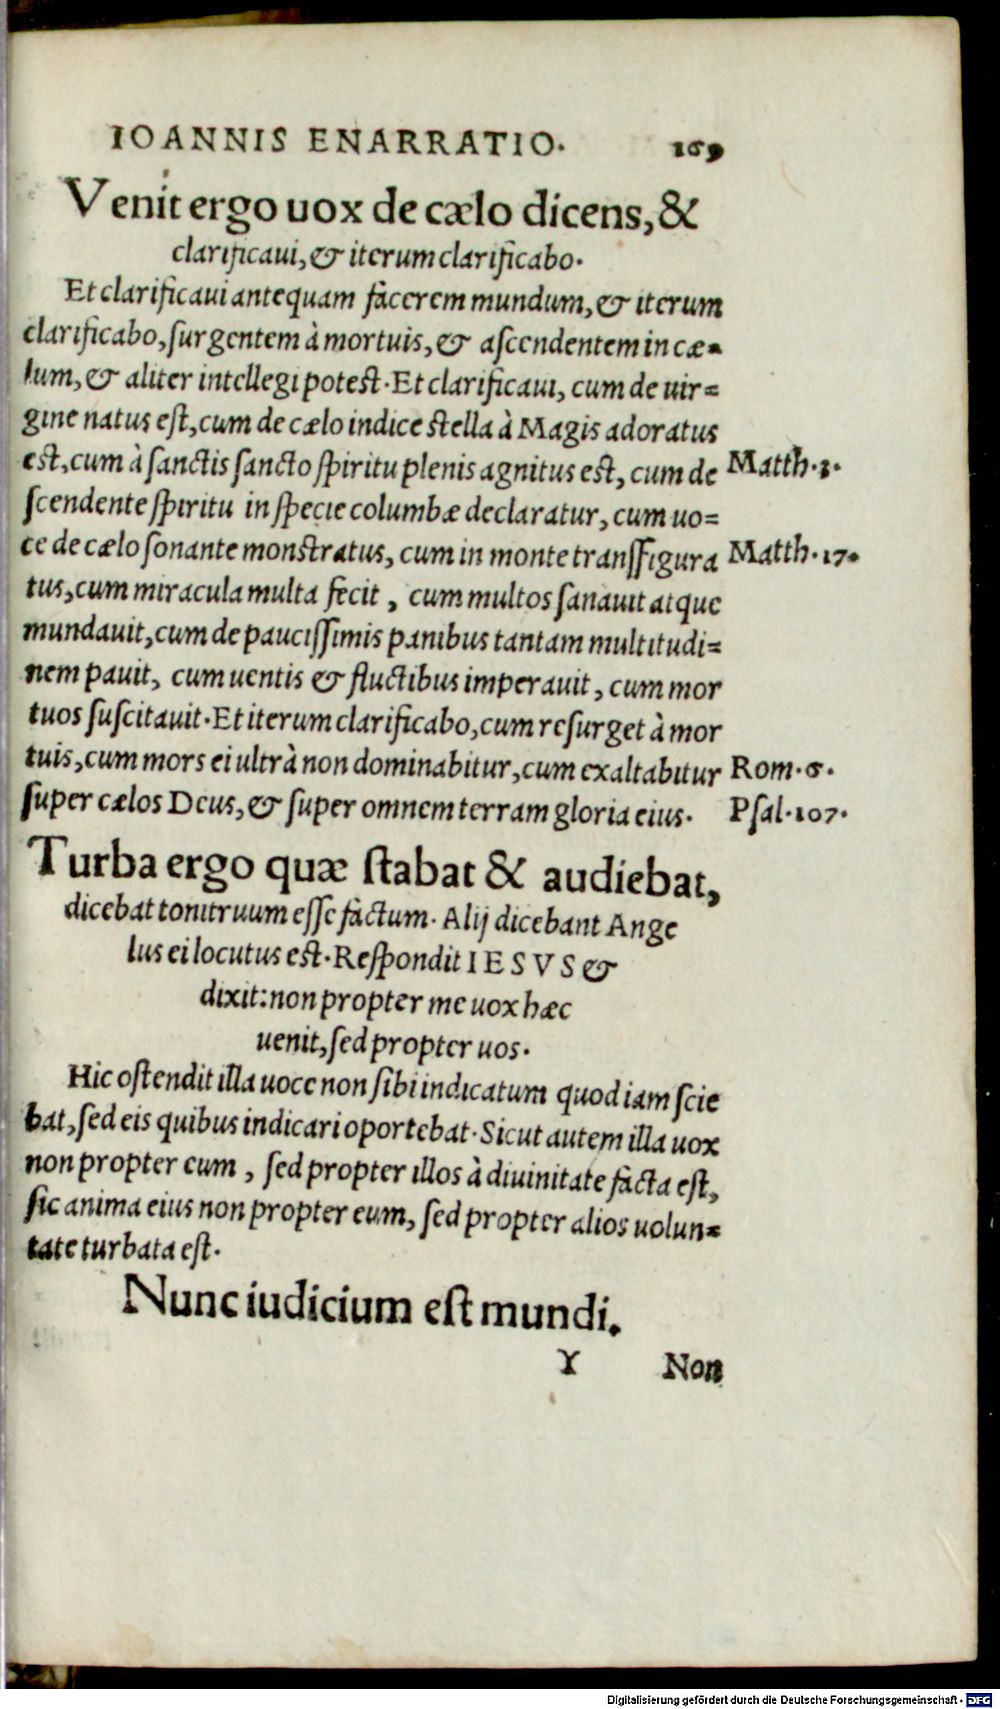 IOANNIS ENARRATIO. 169
Venit ergo uox de cælo dicens, &
clarificaui, & iterum clarificabo.
Et clarificaui antequam facerem mundum, & iterum
clarificabo, ſurgentem à mortuis, & aſcendentem in cæ-
lum, & aliter intellegi potest. Et clarificaui, cum de uir=
gine natus eſt, cum de cælo indice stella à Magis adoratus
est, cum à ſanctis ſancto ſpiritu plenis agnitus est, cum de Matth.3.
ſcendente ſpiritu in ſpecie columbæ declaratur, cum uo=
ce de cælo ſonante monstratus, cum in monte transſigura Matth.17.
tus, cum miracula multa fecit, cum multos ſanauit atque
mundauit, cum de pauciſſimis panibus tantam multitudi=
nem pauit, cum uentis & fluctibus imperauit, cum mor
tuos ſuſcitauit. Et iterum clarificabo, cum reſurget à mor
tuis, cum mors ei ultrà non dominabitur, cum exaltabitur Rom.6.
ſuper cælos Deus, & ſuper omnem terram gloria eius. Pſal.107.
Turba ergo quæ ſtabat & audiebat,
dicebat tonitruum eſſe factum. Alij dicebant Ange
lus ei locutus est. Reſpondit IESVS &
dixit: non propter me uox hæc
uenit, ſed propter uos.
Hic oſtendit illa uoce non ſibi indicatum quod iam ſcie
bat, ſed eis quibus indicari oportebat. Sicut autem illa uox
non propter eum, ſed propter illos à diuinitate facta eſt,
ſic anima eius non propter eum, ſed propter alios uolun=
tate turbata eſt.
Nunc iudicium eſt mundi.
Y Non
Digitalisierung gefördert durch die Deutsche Forschungsgemeinschaft - DFG